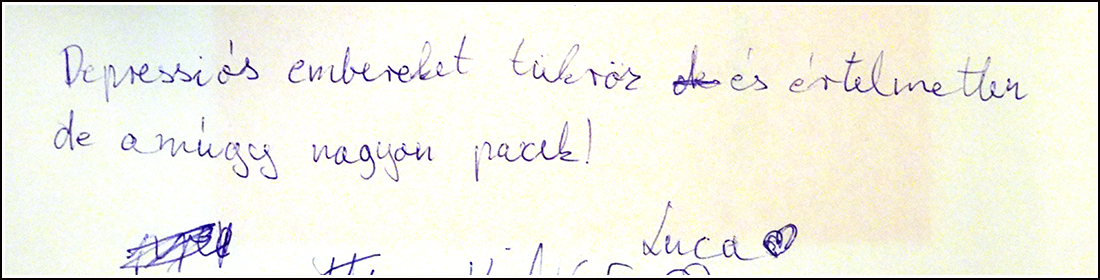 Depressziós embereket tükröz és értelmetlen
de amúgy nagyon pacek!
Luca